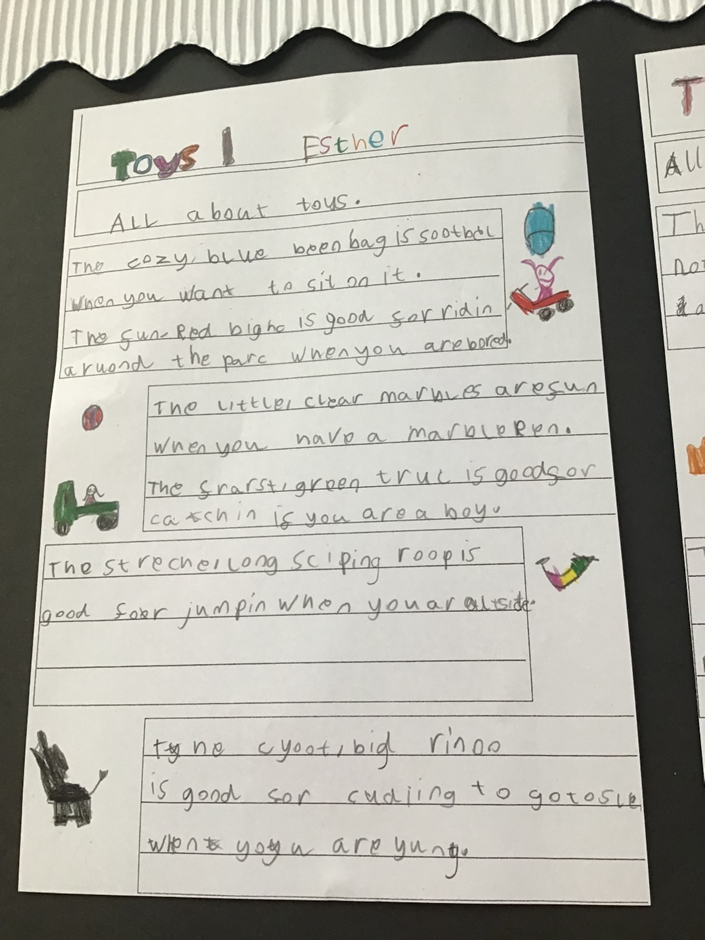 Toys | Esther
All about toys.
The cozy, blue been bag is sootbol
when you want to sit on it.
The fun-Red bighc is good for ridin
aruond the parc when you are bored.
The Little, clear marbles are fun
when you have a marble Ren.
The frarst, green truc is good for
catchin if you are a boy.
The strecher Long sciping roop is
good foor jumpin when you ar altside.
the cyoot, big rinoo
is good for cudiing to go to sle
when you are yung.
T
All
Th
not